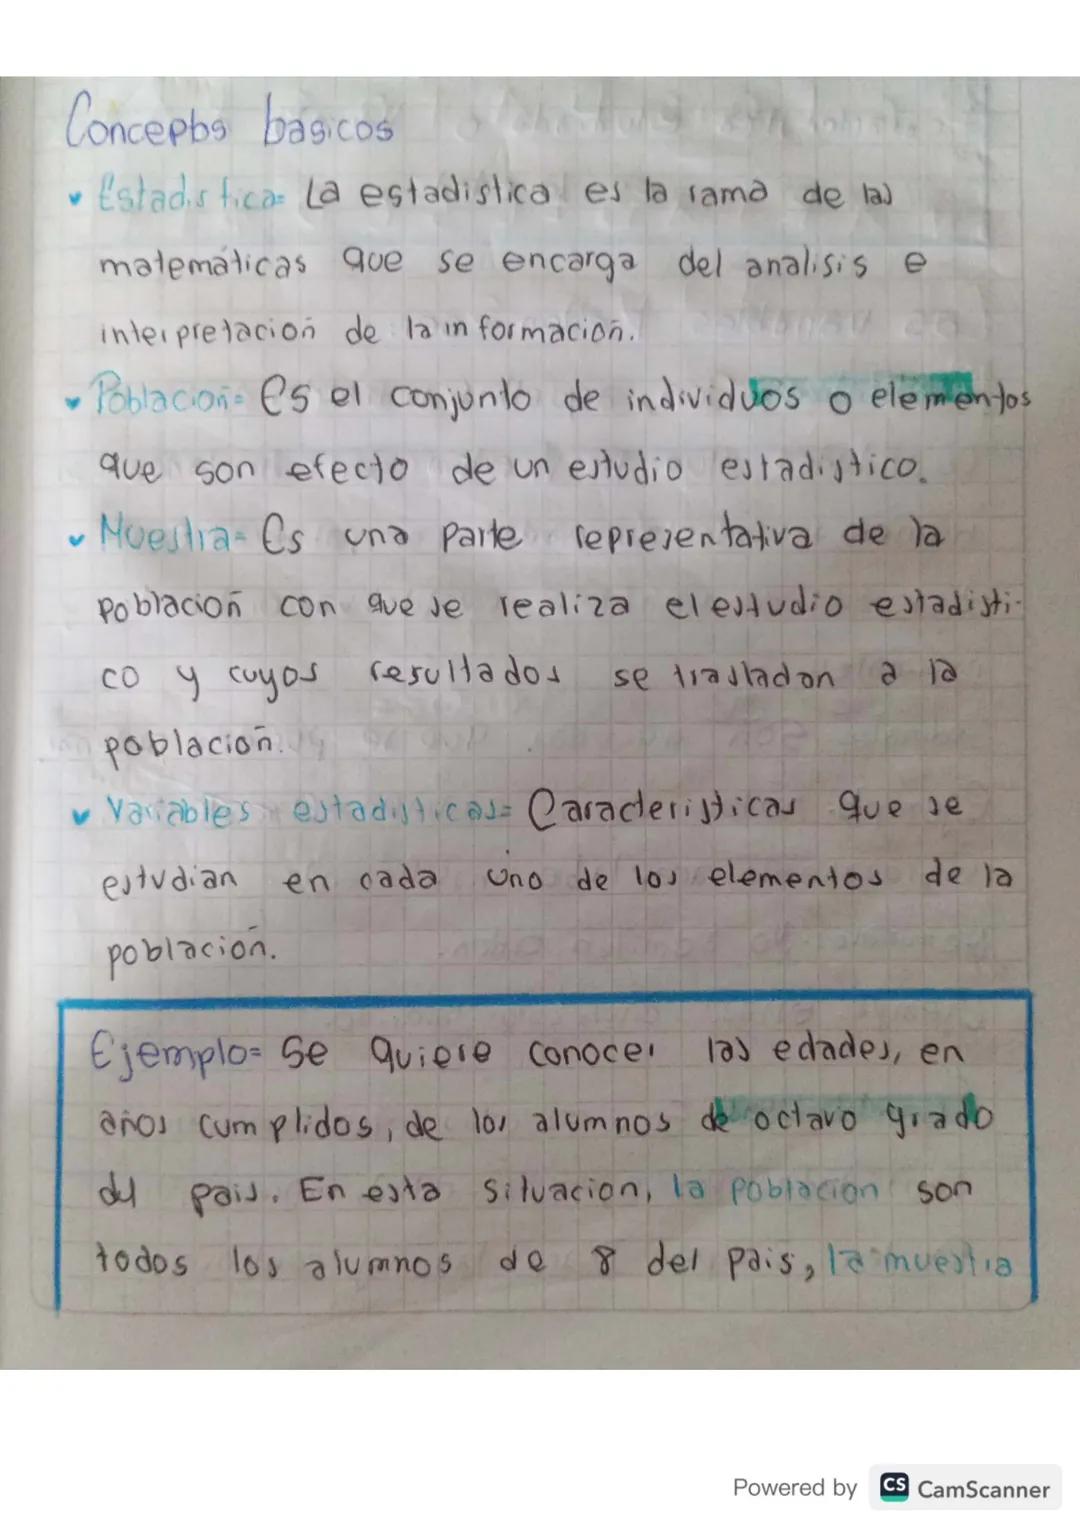 Conceptos básicos
Estadistica= La estadistica es la rama de las
matemáticas que se encarga del analisis e
interpretación de la información.
Población= Es el conjunto de individuos o elementos
que son efecto de un estudio estadistico.
Muestra= Es una parte representativa de la
población con que se realiza el estudio estadisti-
co y cuyos resultados se trasladan a la
población.
Variables estadisticas= Caracteristicas que se
estudian en cada uno de los elementos de la
población.
Ejemplo= Se quiere conocer las edades, en
años cumplidos, de los alumnos de octavo grado
del pais. En esta situacion, la poblacion son
todos los alumnos de 8 del pais, la muestra
Powered by CS CamScanner